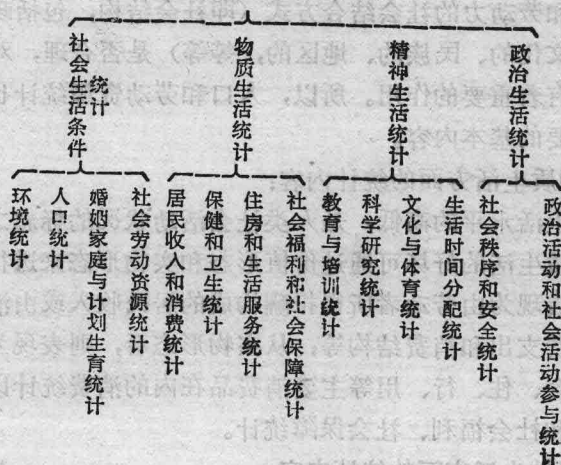 社会生活条件统计
物质生活统计
精神生活统计
政治生活统计
环境统计
人口统计
婚姻家庭与计划生育统计
社会劳动资源统计
居民收入和消费统计
保健和卫生统计
住房和生活服务统计
社会福利和社会保障统计
教育与培训统计
科学研究统计
文化与体育统计
生活时间分配统计
社会秩序和安全统计
政治活动和社会活动参与统计